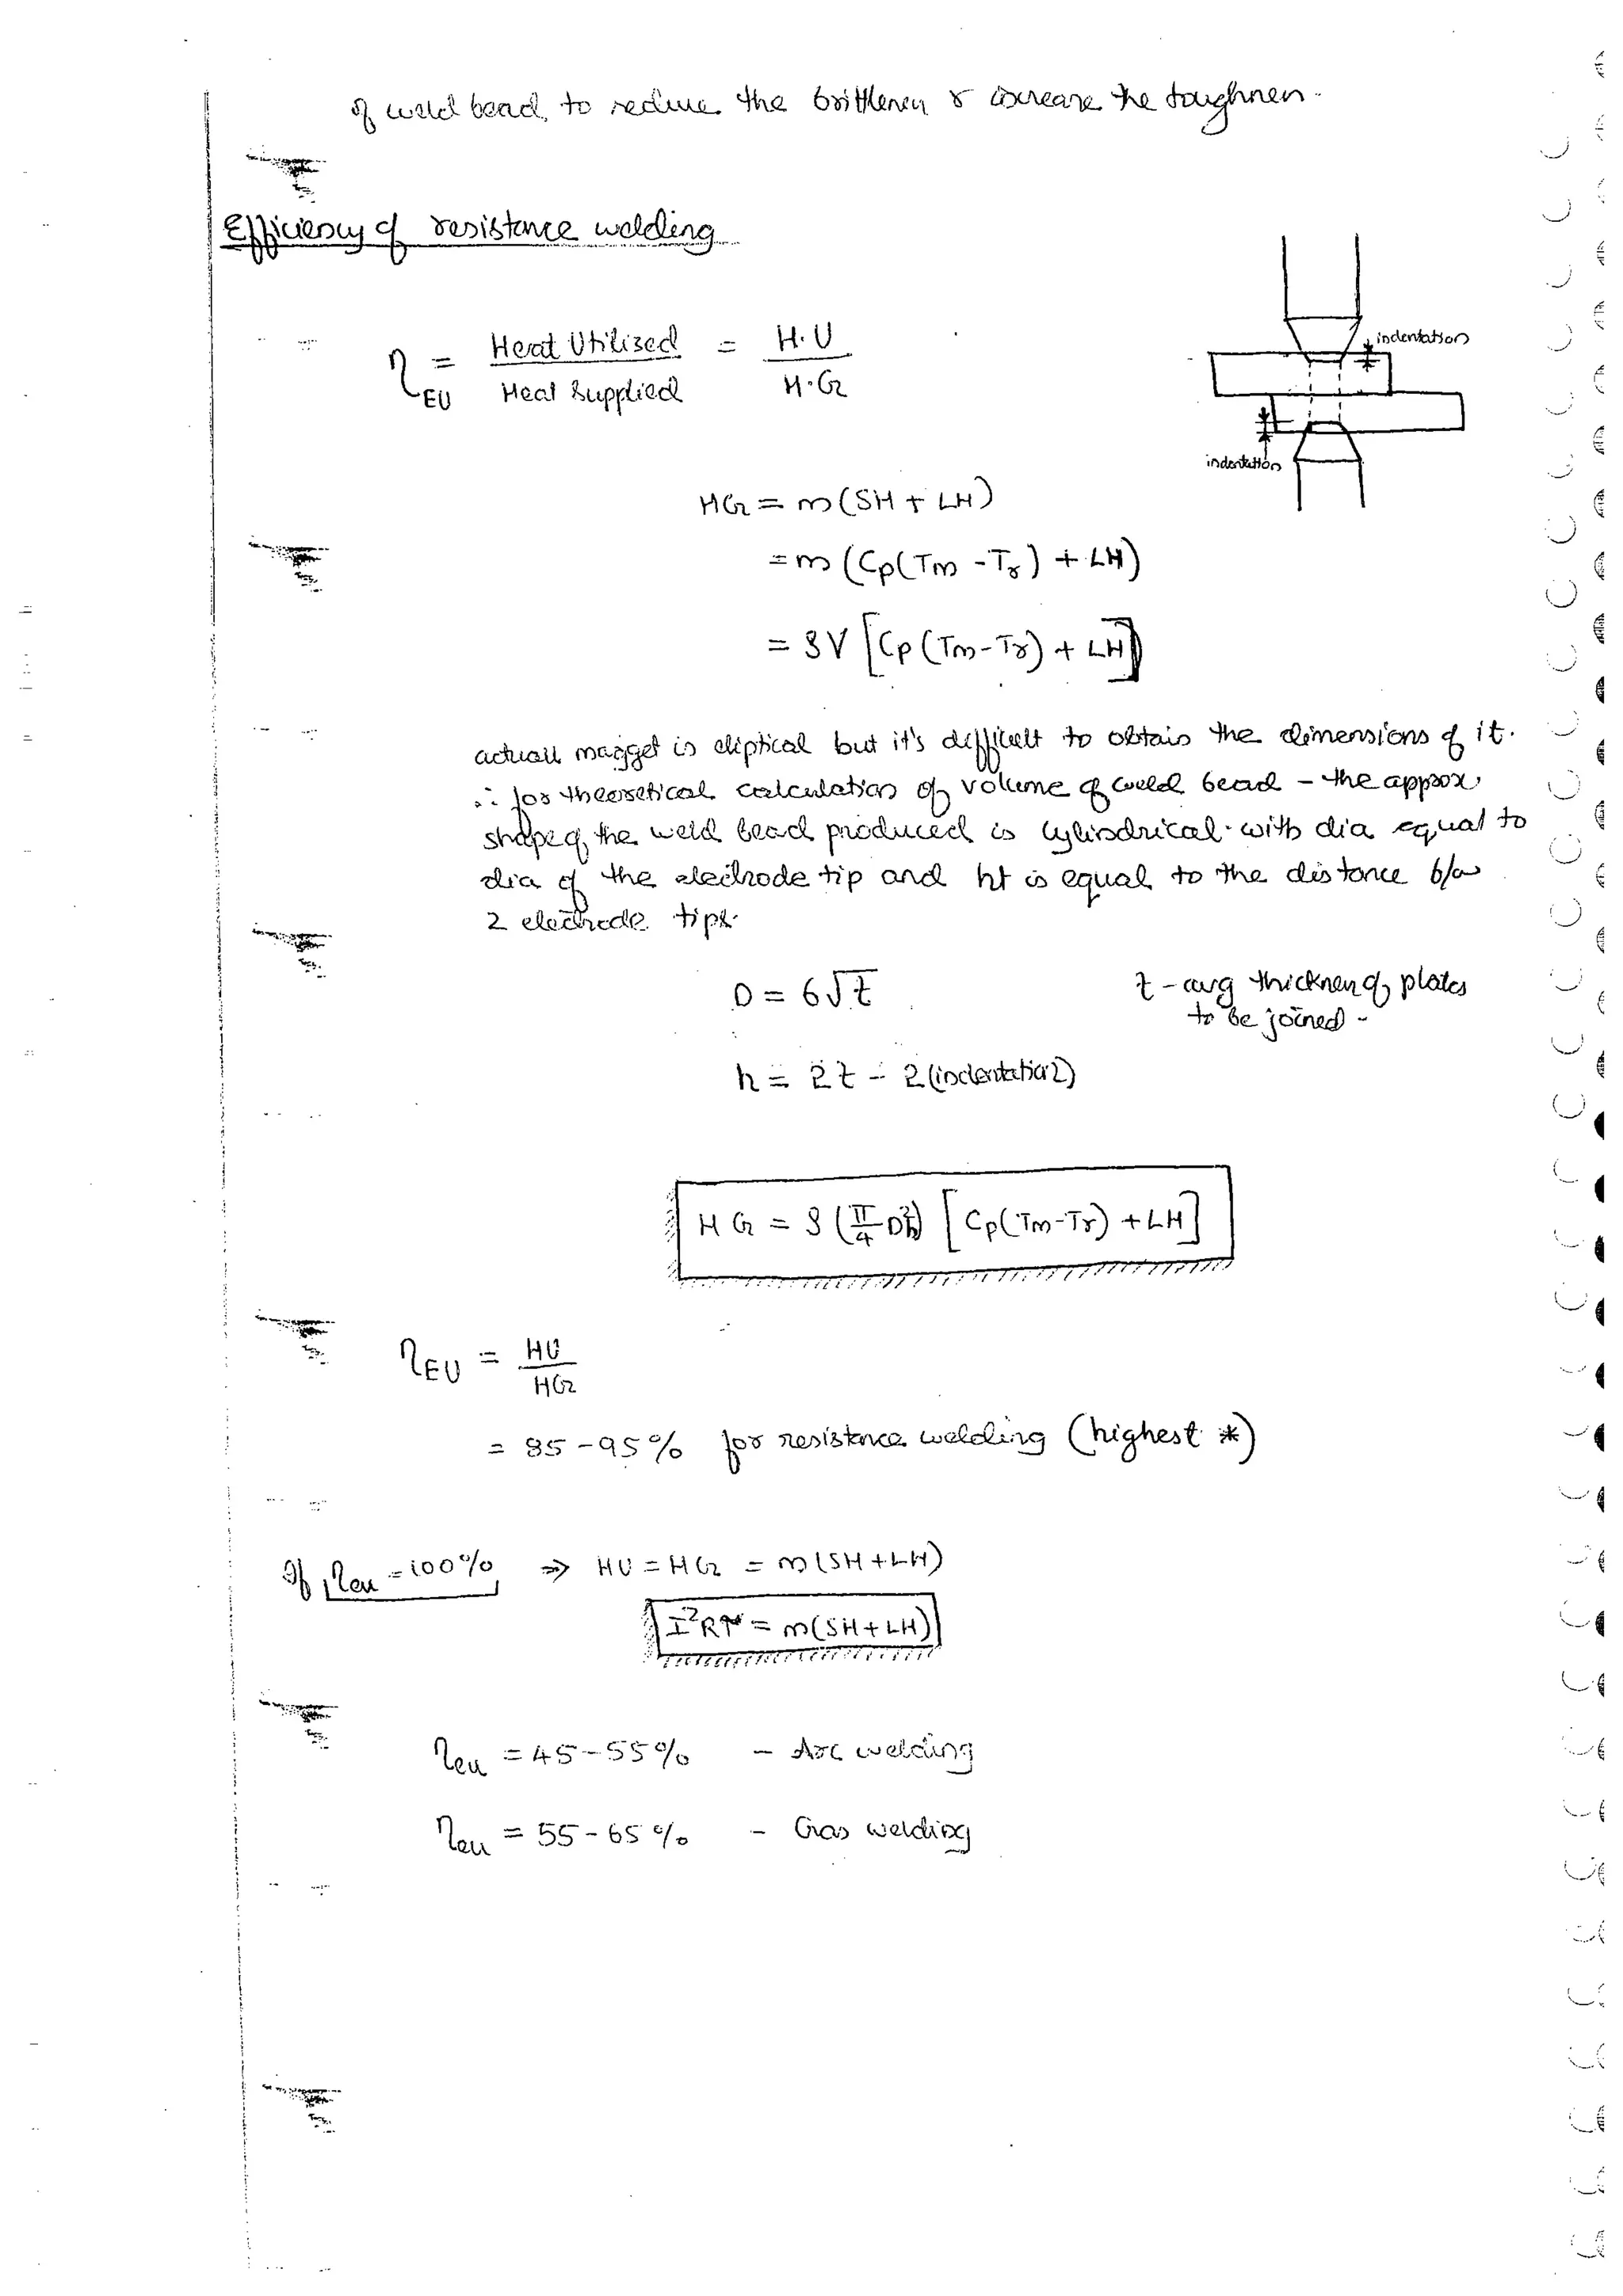 of weld bead, to reduce the brittleness & increase the toughness.
Efficiency of resistance welding
η_EU = Heat Utilised / Heat Supplied = H.U / H.G
indentation
indentation
HG = m (SH + LH)
= m (Cp (Tm - Tr) + LH)
= ρV [Cp (Tm - Tr) + LH]
actuall nugget is eliptical but it's difficult to obtain the dimensions of it.
∴ for theoretical calculation of volume of weld bead - the approx
shape of the weld bead produced is cylindrical with dia equal to
dia of the electrode tip and ht is equal to the distance b/w
2 electrode tips.
D = 6√t
t - avg thickness of plates
to be joined -
h = 2t - 2 (indentation)
HG = ρ (π/4 D²h) [Cp (Tm - Tr) + LH]
η_EU = HU / HG
= 85 - 95 % for resistance welding (highest *)
If η_eu = 100% ⇒ HU = HG = m (SH + LH)
I²Rτ = m (SH + LH)
η_eu = 45 - 55 % - Arc welding
η_eu = 55 - 65 % - Gas welding